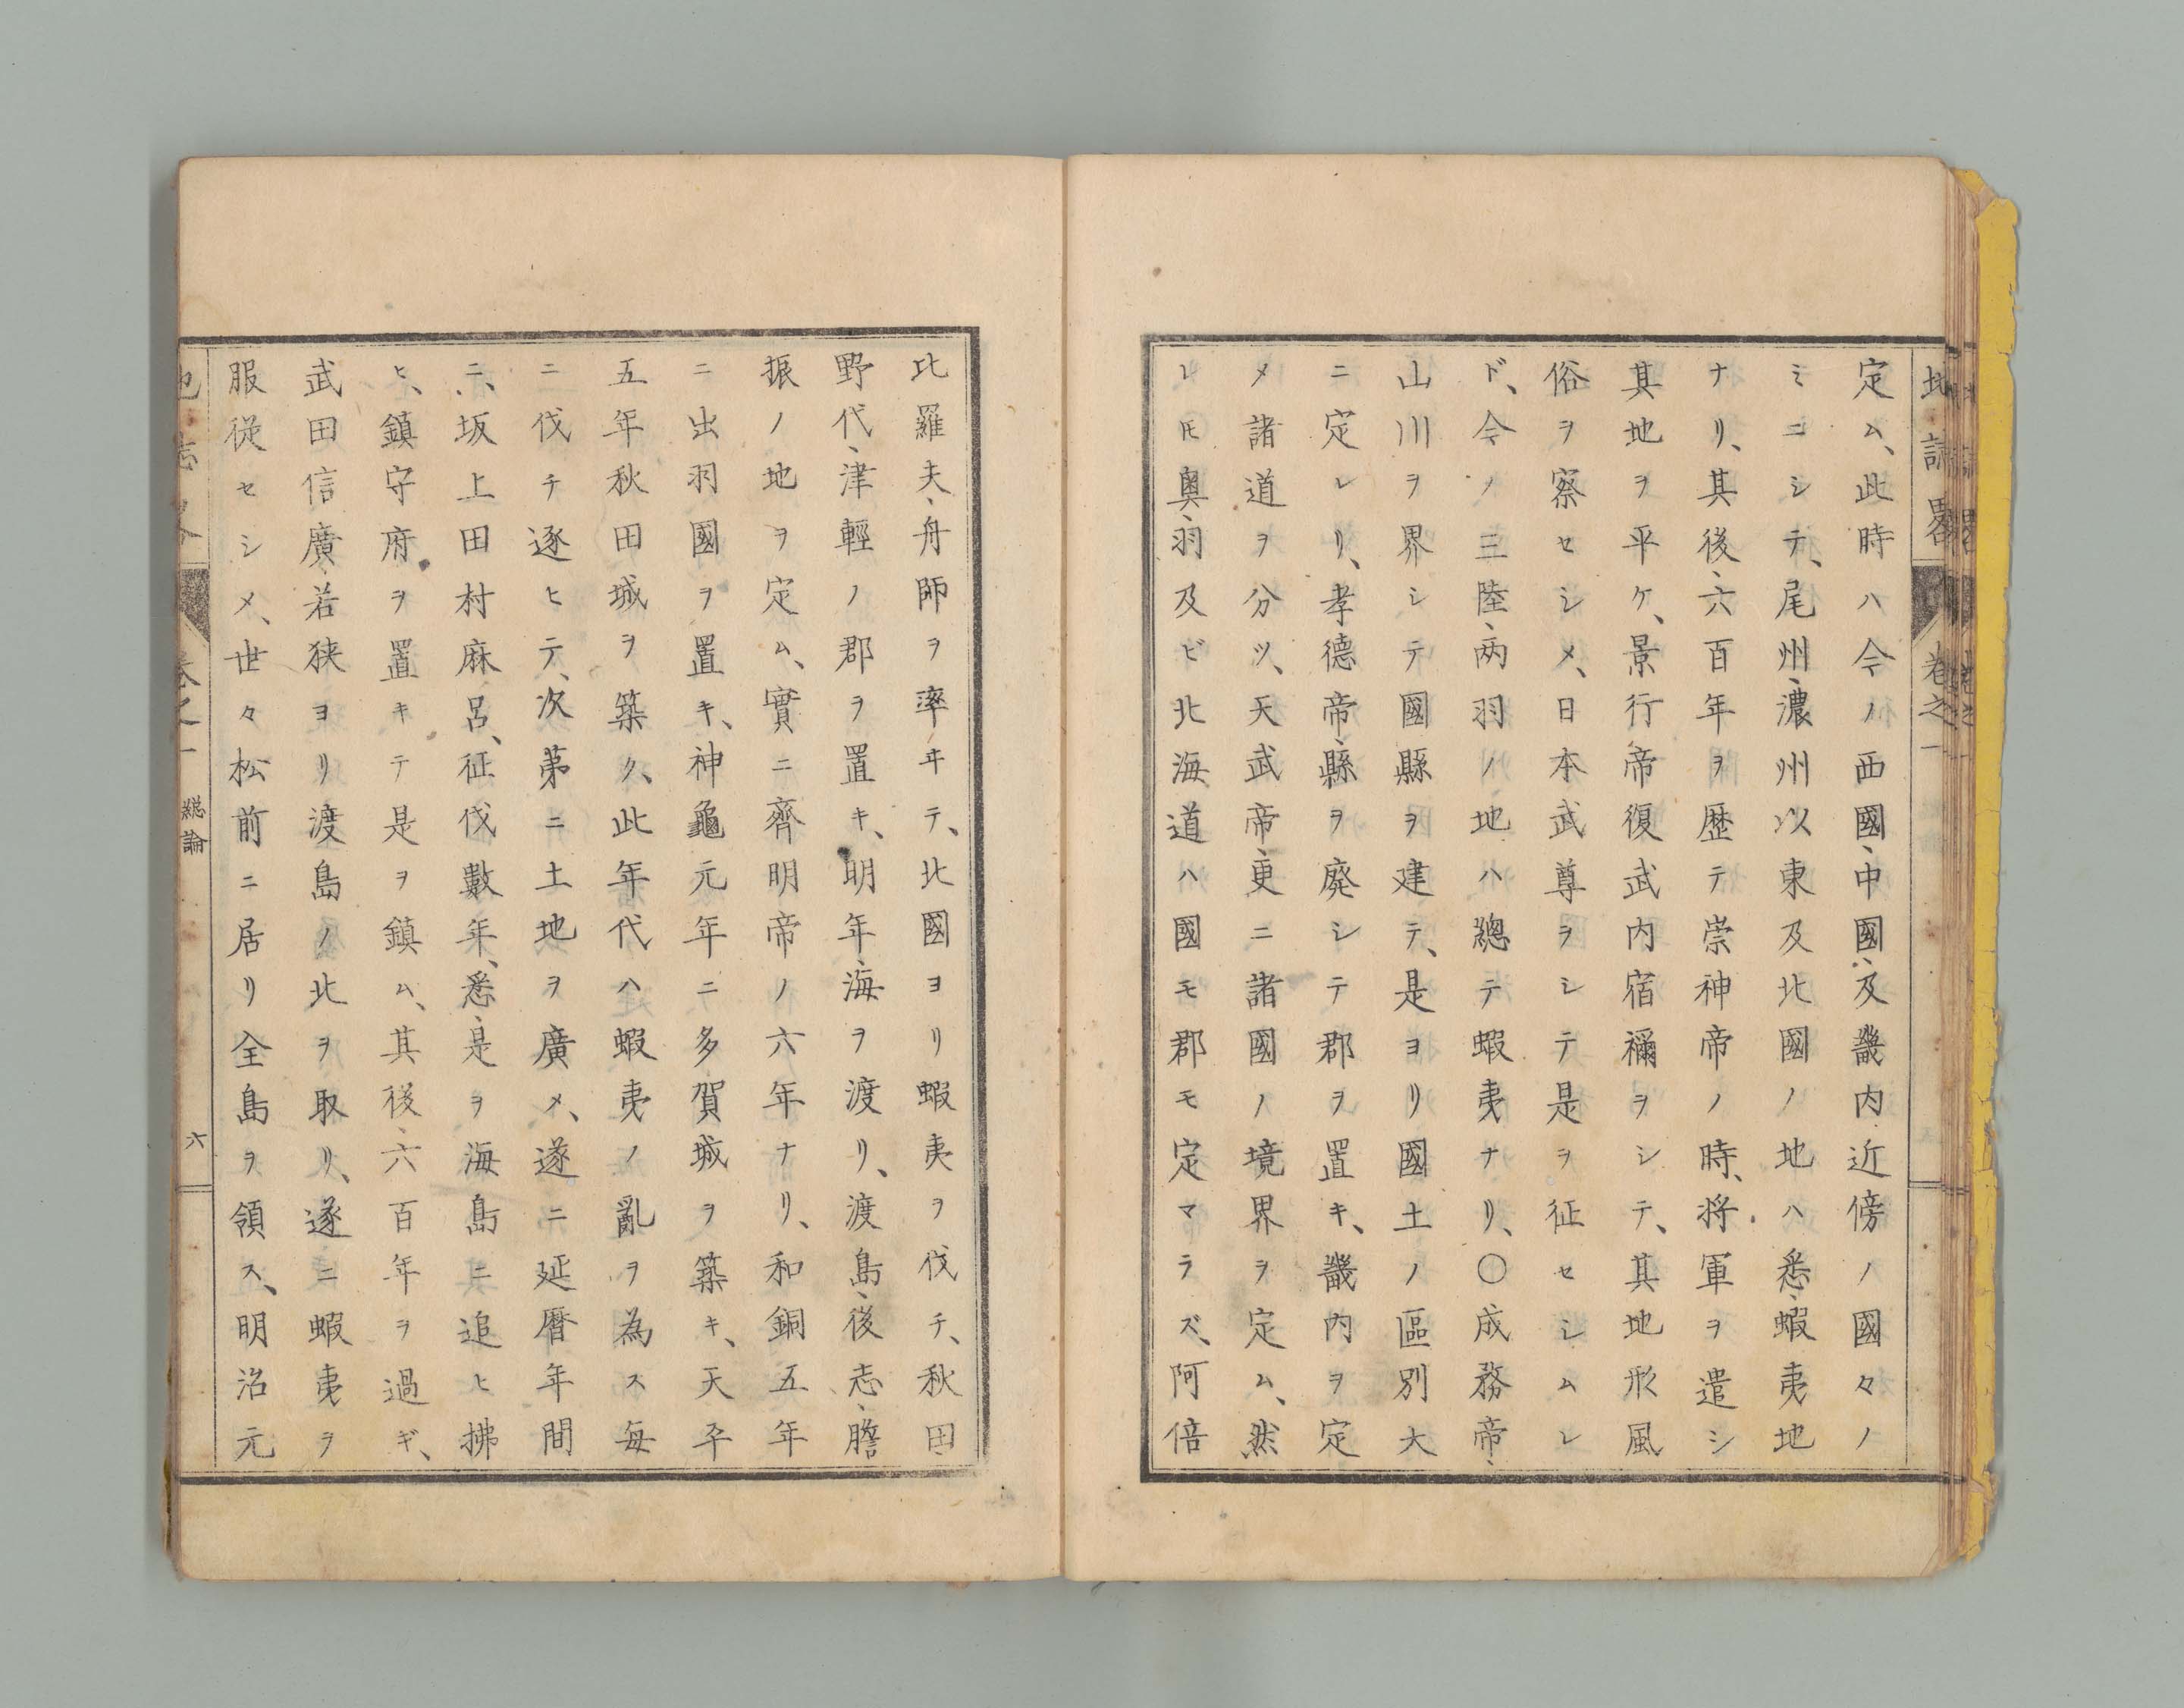 地誌畧 卷之一
定ム、此時ハ今ノ西國、中國、及畿内近傍ノ國々ノ
ミニシテ、尾州、濃州以東及北國ノ地ハ悉、蝦夷地
ナリ、其後、六百年ヲ歴テ崇神帝ノ時、将軍ヲ遣シ
其地ヲ平ケ、景行帝復武内宿禰ヲシテ、其地形風
俗ヲ察セシメ、日本武尊ヲシテ是ヲ征セシムレ
ド、今ノ三陸、両羽ノ地ハ總テ蝦夷ナリ、〇成務帝、
山川ヲ界シテ國縣ヲ建テ、是ヨリ國土ノ區別大
ニ定レリ、孝德帝、縣ヲ廢シテ郡ヲ置キ、畿内ヲ定
メ諸道ヲ分ツ、天武帝、更ニ諸國ノ境界ヲ定ム、然
レ𪜈奥、羽及ビ北海道ハ國モ郡モ定マラズ、阿倍
比羅夫、舟師ヲ率ヰテ、北國ヨリ蝦夷ヲ伐チ、秋田
野代、津輕ノ郡ヲ置キ、明年、海ヲ渡リ、渡島、後志、膽
振ノ地ヲ定ム、實ニ齊明帝ノ六年ナリ、和銅五年
ニ出羽國ヲ置キ、神龜元年ニ多賀城ヲ築キ、天平
五年秋田城ヲ築ク、此年代ハ蝦夷ノ亂ヲ為ス毎
ニ伐チ逐ヒテ、次第ニ土地ヲ廣メ、遂ニ延暦年間
ニ、坂上田村麻呂、征伐數年、悉、是ヲ海島ニ追ヒ拂
ヒ、鎮守府ヲ置キテ是ヲ鎮ム、其後、六百年ヲ過ギ、
武田信廣、若狭ヨリ渡島ノ北ヲ取リ、遂ニ蝦夷ヲ
服從セシメ、世々松前ニ居リ全島ヲ領ス、明治元
地志畧 卷之一 總論 六